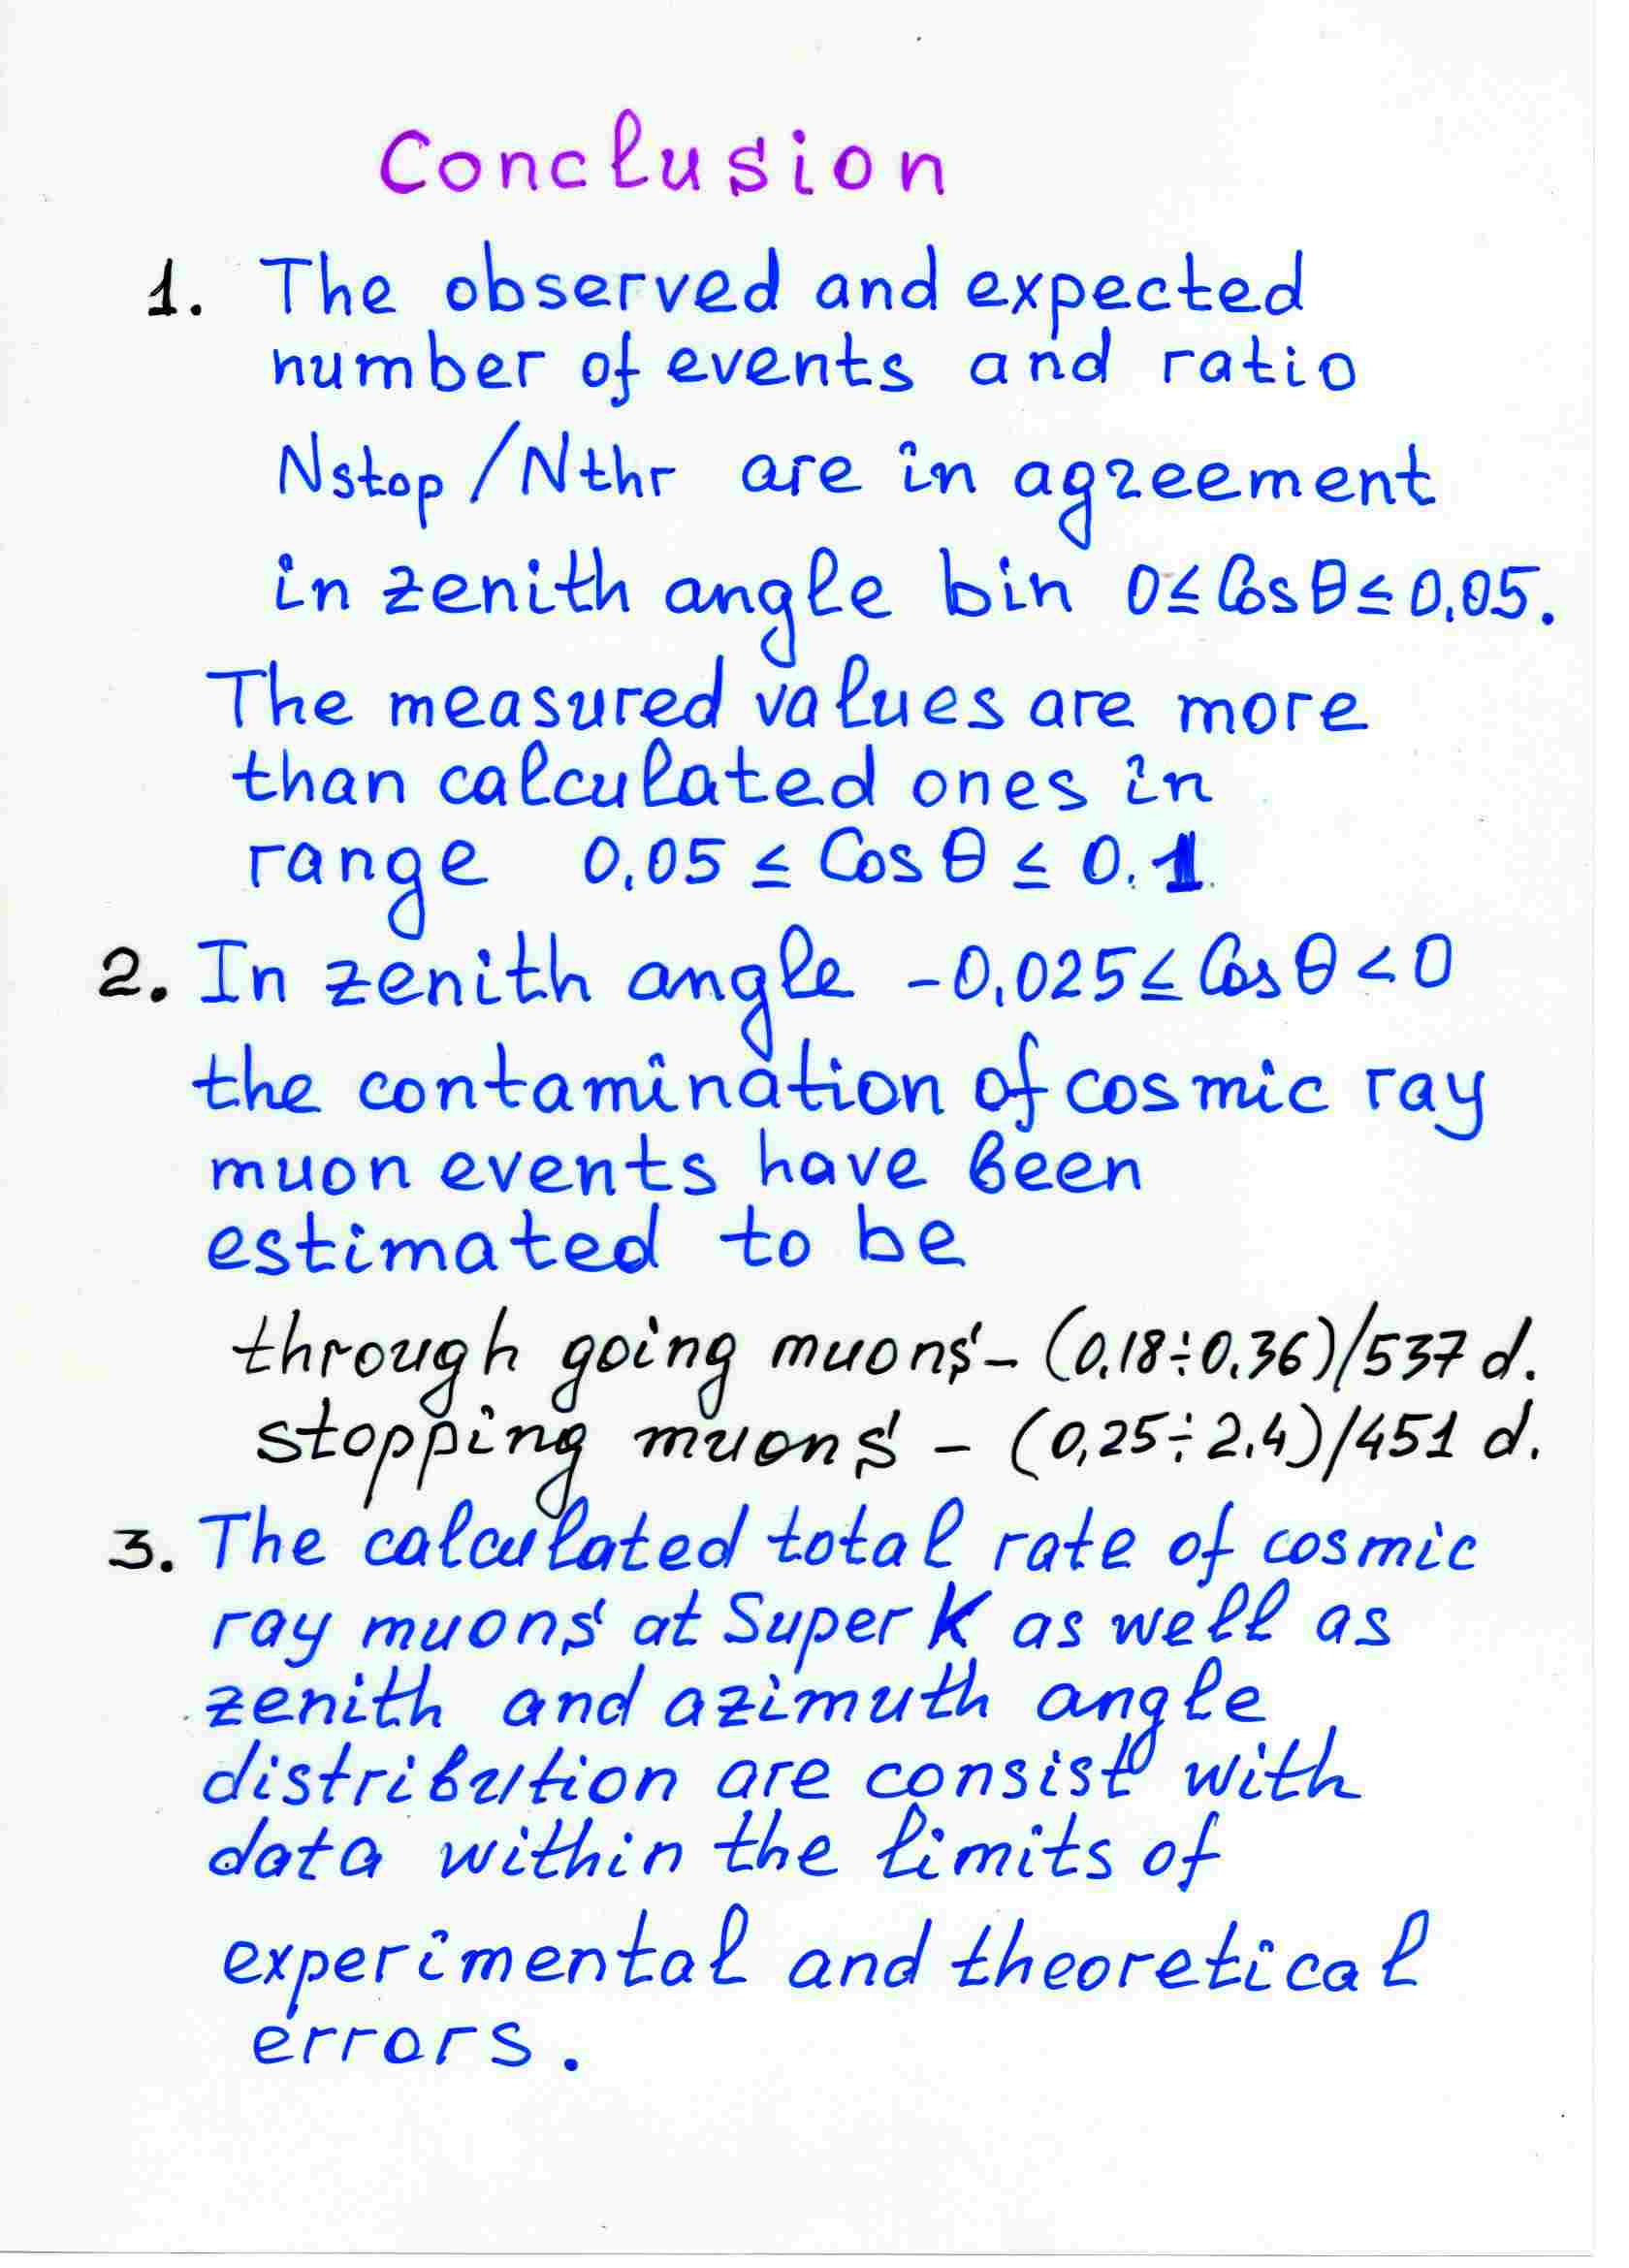 Conclusion
1. The observed and expected
number of events and ratio
Nstop/Nthr are in agreement
in zenith angle bin 0≤Cosθ≤0,05.
The measured values are more
than calculated ones in
range 0,05 ≤ Cosθ ≤ 0.1
2. In zenith angle -0,025≤Cosθ<0
the contamination of cosmic ray
muon events have been
estimated to be
through going muons - (0,18÷0,36)/537 d.
stopping muons - (0,25÷2,4)/451 d.
3. The calculated total rate of cosmic
ray muons at Super K as well as
zenith and azimuth angle
distribution are consist with
data within the limits of
experimental and theoretical
errors.